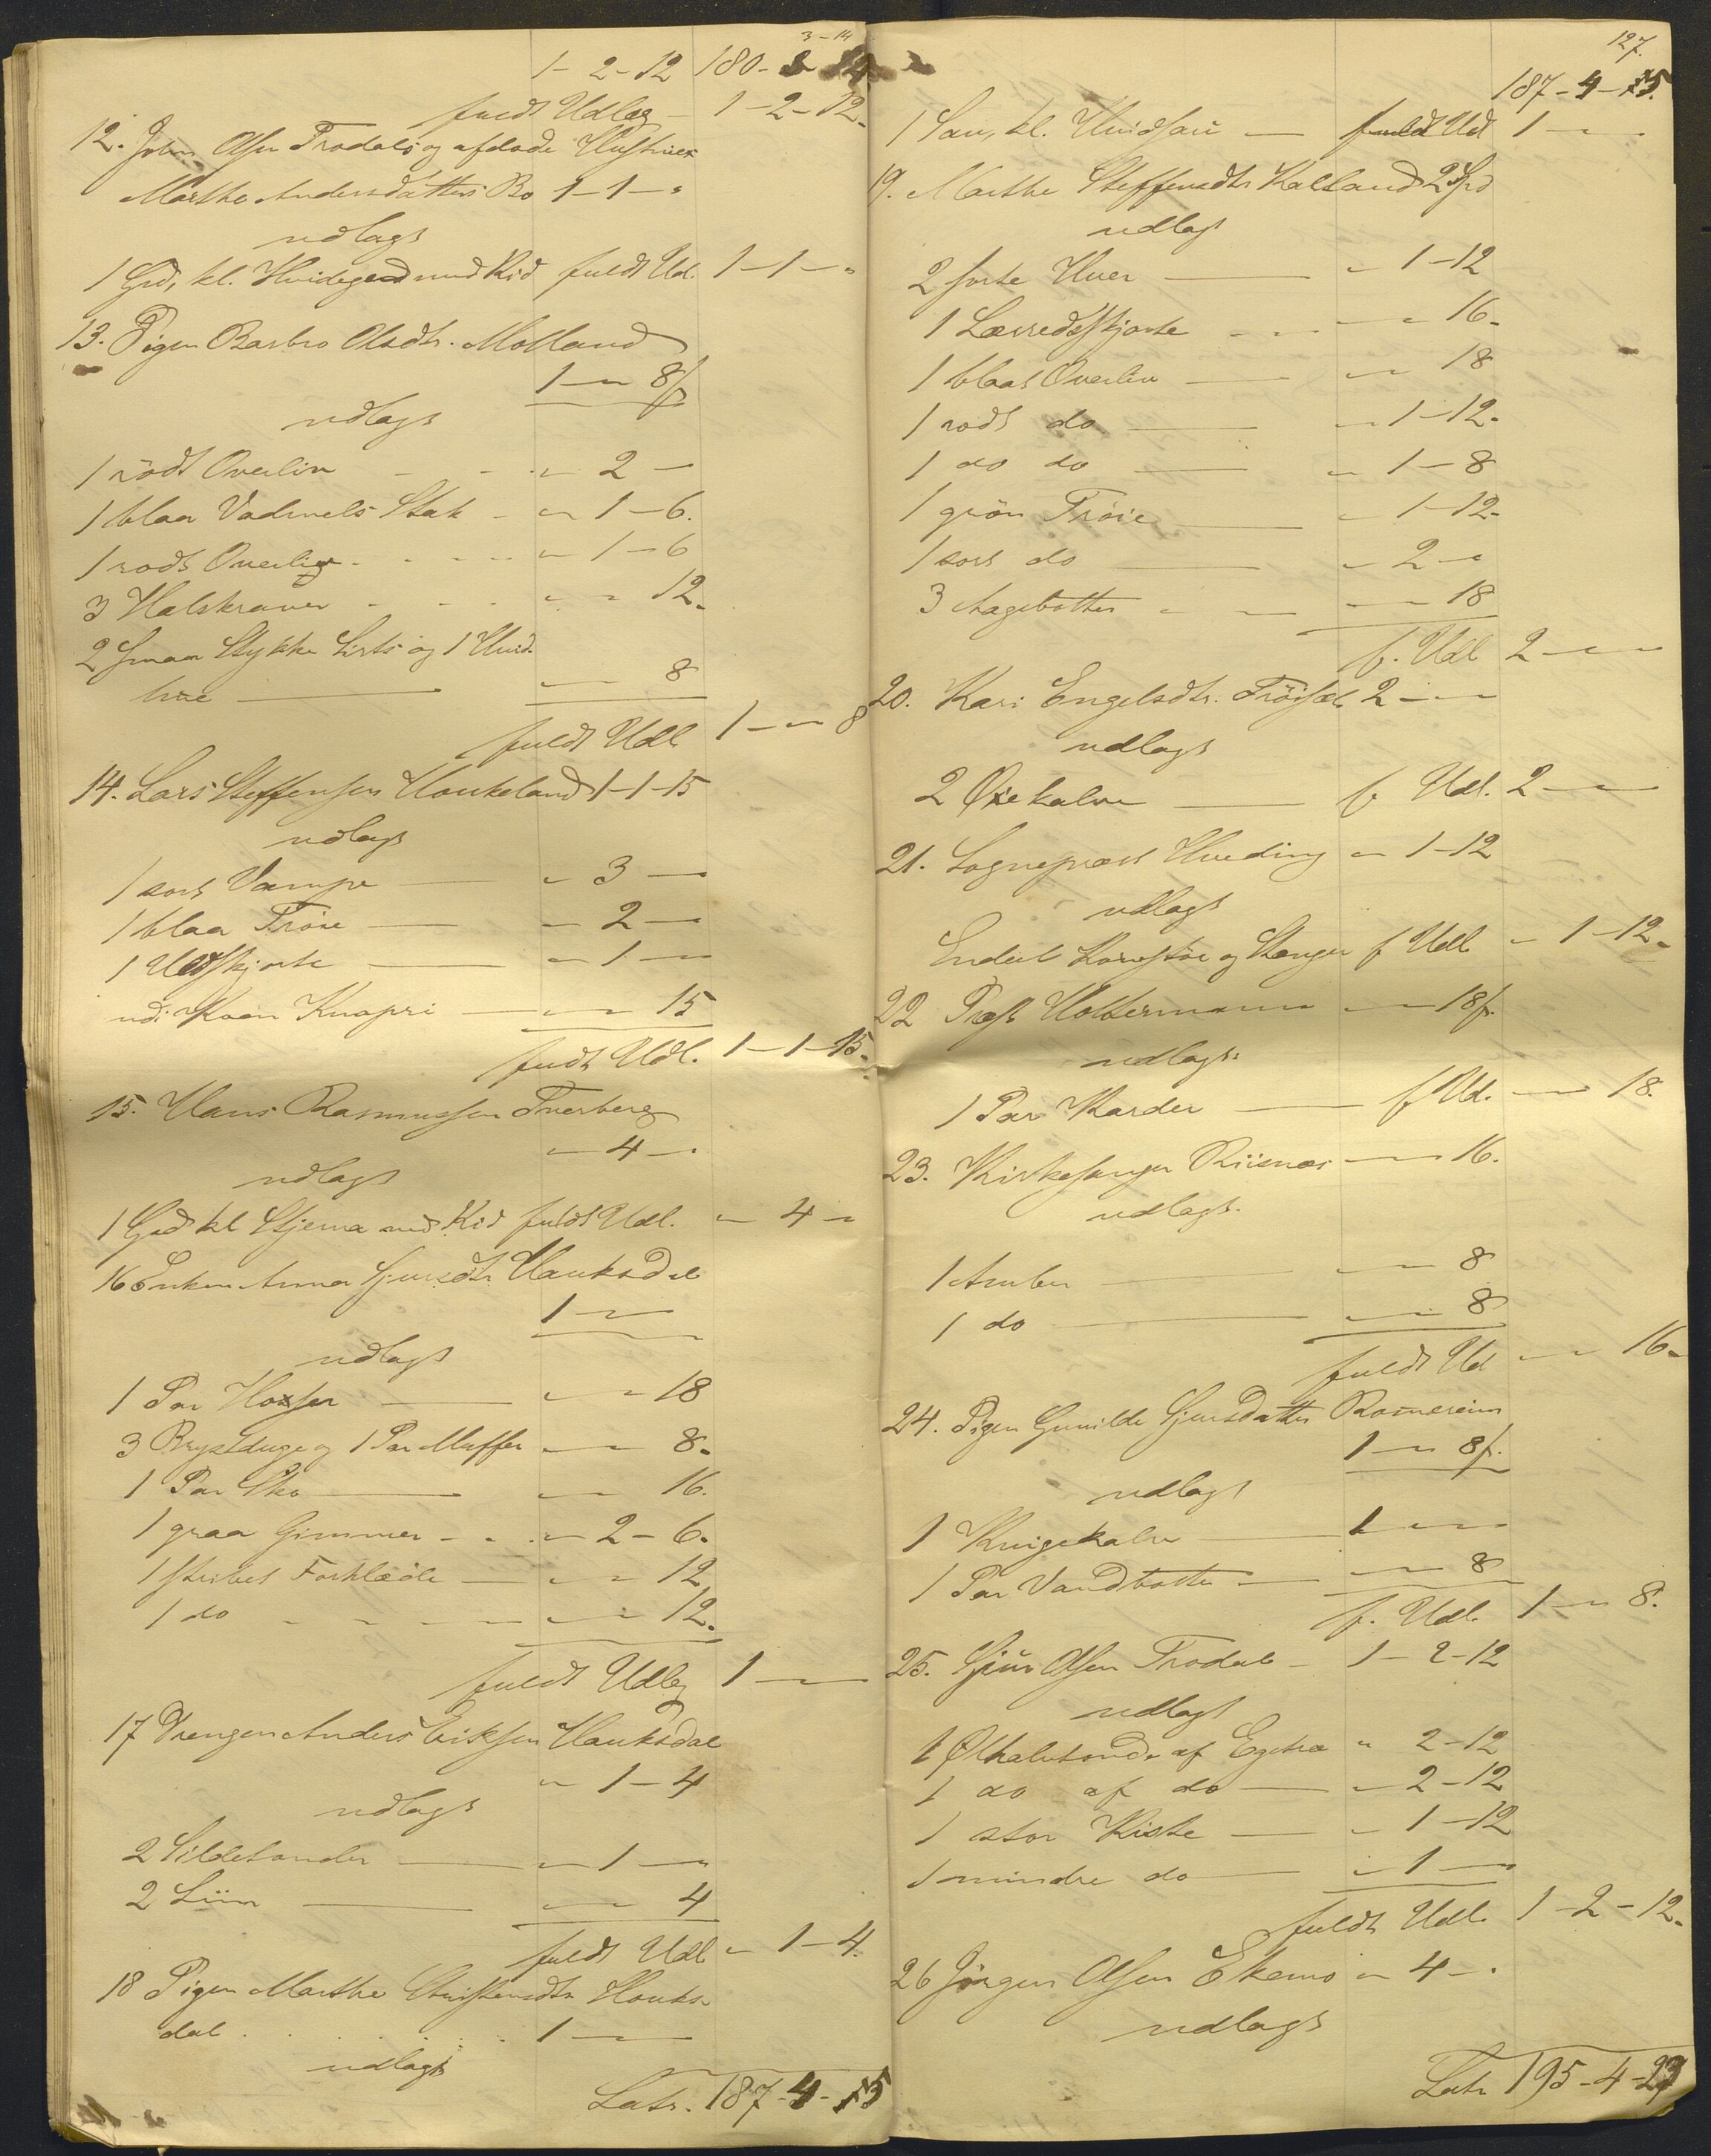 3-14
1-2-12 180-3-14
fuldt Udlæg 1-2-12.
12. Johan Olsen Trodals og afdøde Hustrues
Marthe Andersdatters Bo 1-1-"
udlagt
1 Gjed, kl. Hvidegeed med Kid fuldt Udl. 1-1-"
13. Pigen Barbro Olsdtr. Molland
1-"-8f
udlagt
1 rödt Overliv - - " 2 -
1 blaa Vadmels Stak - " 1-6.
1 rodt Overliv - - - " 1-6
3 Halskraver - - - " " 12.
2 smaa Stykke Sirts og 1 Hvid
hue — " 8
fuldt Udl. 1-"-8
14. Lars Steffensen Haukeland 1-1-15
udlagt
1 sort Vampe — " 3 —
1 blaa Trøie — " 2 —
1 Uldskjorte — " 1 —
udi Knapri — " " 15
fuldt Udl. 1-1-15.
15. Hans Rasmussen Tverberg
" 4 -"
udlagt
1 Gjed kl Stjerna med Kid fuldt Udl. " 4 "
16 Enken Anna Sjursdtr Hauksdal
1 - "
udlagt
1 Par Hoser — " " 18
3 Brystduge og 1 Par Muffer " " 8.
1 Par Sko — " 16.
1 graa Gimmer - - " 2-6.
1 stribet Forklæde — " " 12
1 do - - - - " " 12.
fuldt Udlæg 1 - "
17 Drengen Anders Eriksen Hauksdal
" 1-4
udlagt
2 Sildetønder — " 1 — "
2 Liin — " " 4
fuldt Udl. " 1-4.
18 Pigen Marthe Christensdtr Hauks-
dal . . . . . 1 - "
udlagt
Latr. 187-4-15
127.
187-4-15.
1 Sau, kl. Hvidsau — fuldt Udl 1 - "
19. Marthe Steffensdtr Kalland 2 Spd
udlagt
2 sorte Huer — " 1-12
1 Lærredsskjorte - - " " 16-
1 blaat Overliv — " " 18
1 rodt do — " 1-12-
1 do do — " 1-8
1 grön Trøie — " 1-12-
1 sort do — " 2 - "
3 — " " 18
f. Udl 2 - "
20. Kari Engelsdtr. 2 - "
udlagt
2 Oxekalve — f Udl. 2 - "
21. Sognepræst Hveding " 1-12
udlagt
Endeel og Stænger f Udl. " 1-12-
22 Præst Holtermann — " 18f.
udlagt
1 Par Karder — f Udl. " 18.
23. Kirkesanger Riisnæs — " 16.
udlagt.
1 Amber — " 8
1 do — " 8
fuldt Ud " " 16-
24. Pigen Gunilde Sjursdatter Romereim
1 - " 8f.
udlagt
1 Kvigekalv — 1 - "
1 Par Vandbotter — " 8
f. Udl. 1 - " 8.
25. Sjur Olsen Trodal - 1-2-12
udlagt
1 Ølhalvtønde af Egetræ " 2-12
1 do af do — " 2-12
1 stor Kiste — " 1-12
1 mindre do — " 1 - "
fuldt Udl. 1-2-12.
26 Jörgen Olsen Ekemo " 4 - "
udlagt
Latr 195-4-23